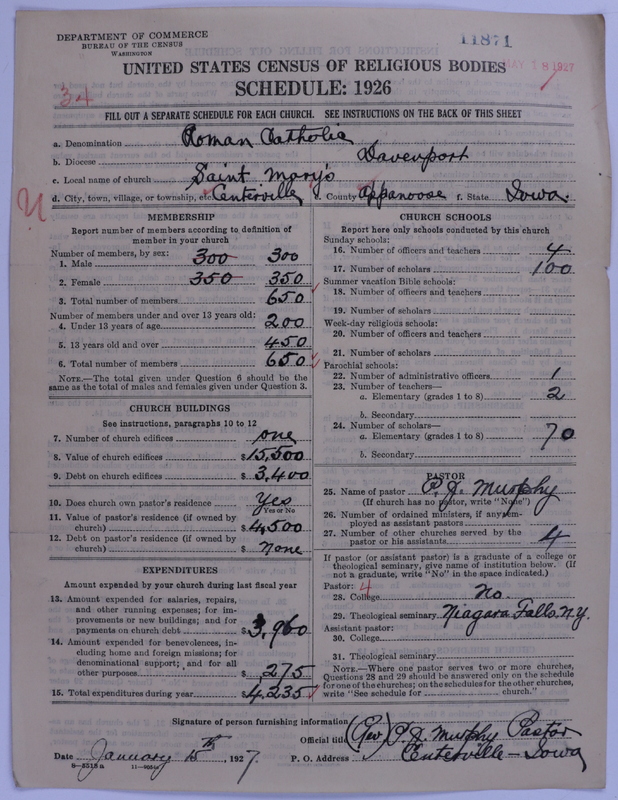 DEPARTMENT OF COMMERCE
BUREAU OF THE CENSUS
WASHINGTON
11871
MAY 18 1927
UNITED STATES CENSUS OF RELIGIOUS BODIES
SCHEDULE: 1926
34
FILL OUT A SEPARATE SCHEDULE FOR EACH CHURCH. SEE INSTRUCTIONS ON THE BACK OF THIS SHEET
a. Denomination Roman Catholic
b. Diocese Davenport
c. Local name of church Saint Mary's
d. City, town, village, or township, etc. Centerville e. County Appanoose f. State Iowa.
MEMBERSHIP
Report number of members according to definition of
member in your church
Number of members, by sex:
1. Male 300 300
2. Female 350 350
3. Total number of members 650
Number of members under and over 13 years old:
4. Under 13 years of age 200
5. 13 years old and over 450
6. Total number of members 650
NOTE.—The total given under Question 6 should be the
same as the total of males and females given under Question 3.
CHURCH BUILDINGS
See instructions, paragraphs 10 to 12
7. Number of church edifices one
8. Value of church edifices $15,500
9. Debt on church edifices $3,400
10. Does church own pastor's residence Yes
Yes or No
11. Value of pastor's residence (if owned by
church) $4,500
12. Debt on pastor's residence (if owned by
church) $ none
EXPENDITURES
Amount expended by your church during last fiscal year
13. Amount expended for salaries, repairs,
and other running expenses; for im-
provements or new buildings; and for
payments on church debt $3,960
14. Amount expended for benevolences, in-
cluding home and foreign missions; for
denominational support; and for all
other purposes $275
15. Total expenditures during year $4,235
CHURCH SCHOOLS
Report here only schools conducted by this church
Sunday schools:
16. Number of officers and teachers 4
17. Number of scholars 100
Summer vacation Bible schools:
18. Number of officers and teachers
19. Number of scholars
Week-day religious schools:
20. Number of officers and teachers
21. Number of scholars
Parochial schools:
22. Number of administrative officers 1
23. Number of teachers—
a. Elementary (grades 1 to 8) 2
b. Secondary
24. Number of scholars—
a. Elementary (grades 1 to 8) 70
b. Secondary
PASTOR
25. Name of pastor P. J. Murphy
(If church has no pastor, write "None")
26. Number of ordained ministers, if any, em-
ployed as assistant pastors
27. Number of other churches served by the
pastor or his assistants 4
If pastor (or assistant pastor) is a graduate of a college or
theological seminary, give name of institution below. (If
not a graduate, write "No" in the space indicated.)
Pastor: 4
28. College No.
29. Theological seminary Niagara Falls. N.Y.
Assistant pastor:
30. College
31. Theological seminary
NOTE.—Where one pastor serves two or more churches,
Questions 28 and 29 should be answered only on the schedule
for one of the churches; on the schedules for the other churches,
write "See schedule for church."
Signature of person furnishing information (Rev) P. J. Murphy
Official title Pastor
Date January 15th, 1927 P. O. Address Centerville - Iowa
8—5518a 11—9054a